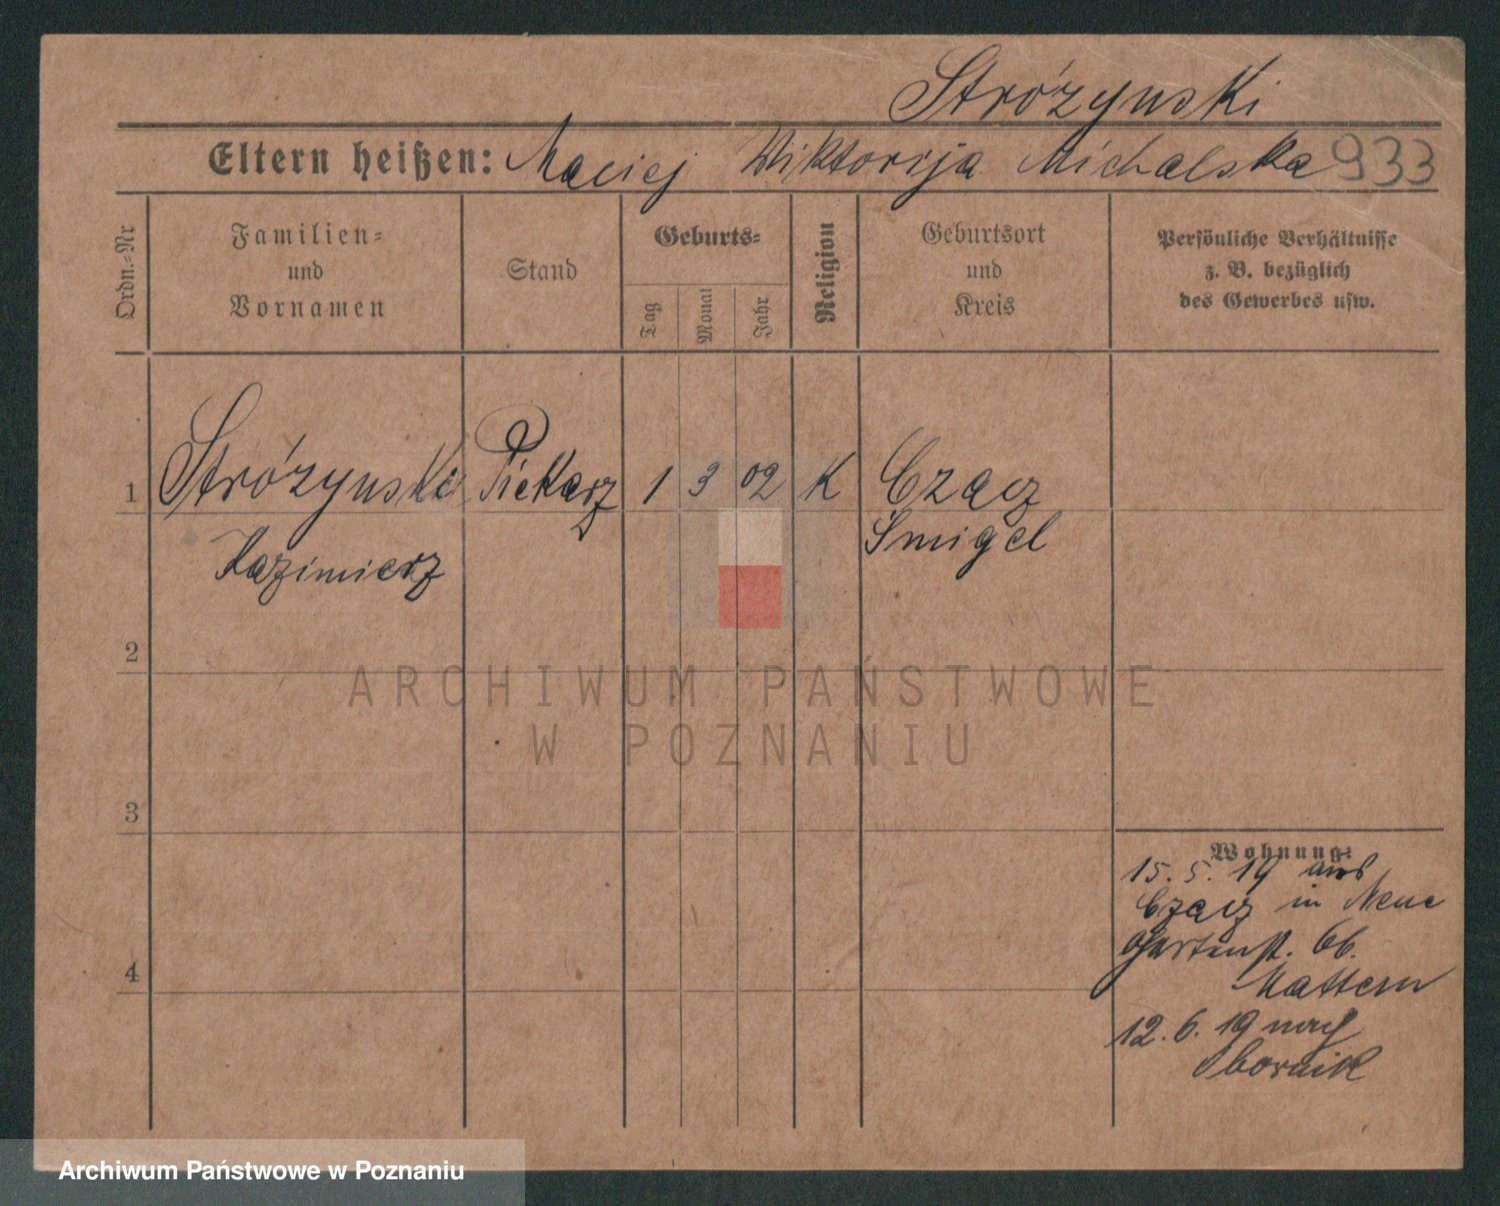 Stróżynski
Eltern heißen: Maciej Wiktorija Michalska 933
Ordn.=Nr
Familien=
und
Vornamen
Stand
Geburts=
Tag
Monat
Jahr
Religion
Geburtsort
und
Kreis
Persönliche Verhältnisse
z. B. bezüglich
des Gewerbes usw.
1 Stróżynski Piekarz 1 3 02 K Czacz
Smigel
Kazimierz
2
ARCHIWUM PAŃSTWOWE
W POZNANIU
3
Wohnung:
15. 5. 19 aus
Czacz in Neue
Gartenst. 66.
Mattern
4
12. 6. 19 nach
Obornik
Archiwum Państwowe w Poznaniu